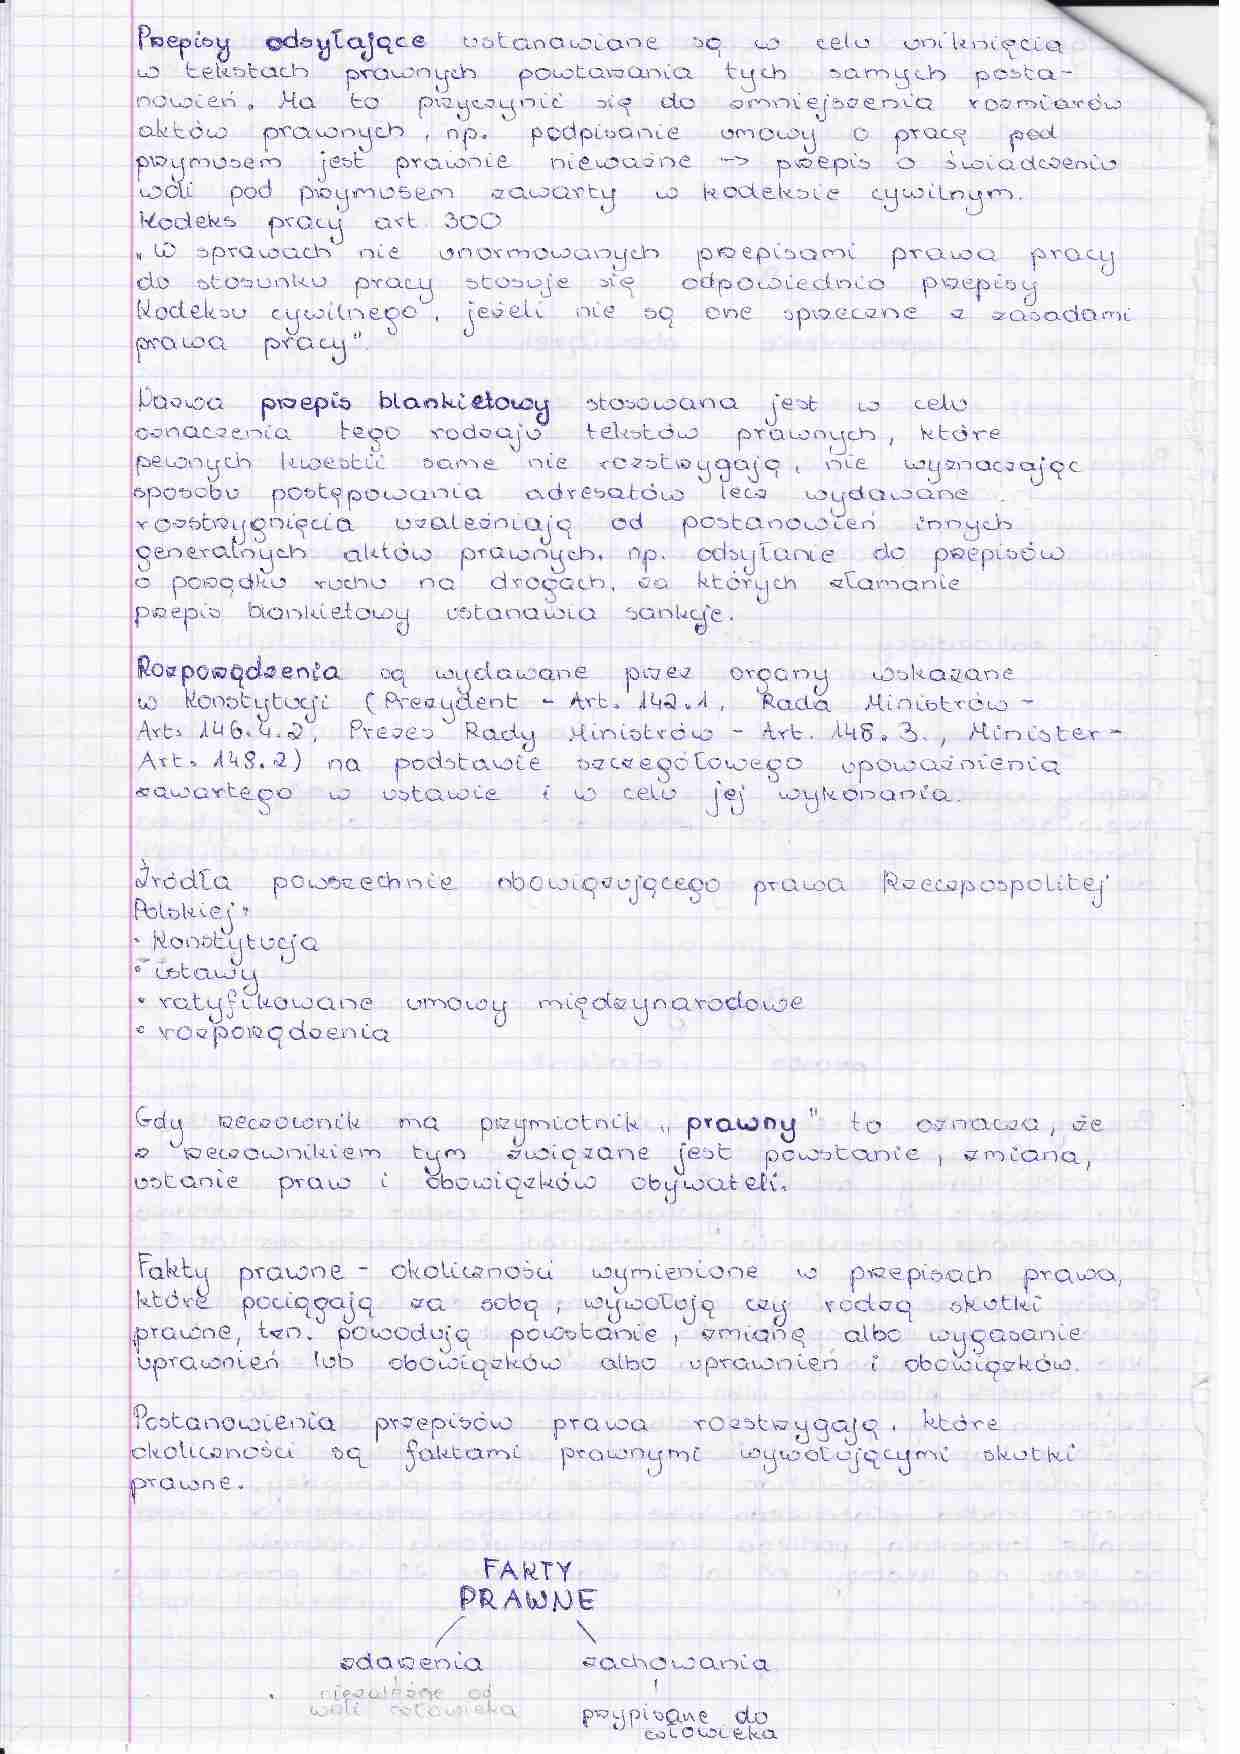 Przepisy odsyłające ustanawiane są w celu uniknięcia
w tekstach prawnych powtarzania tych samych posta-
nowień. Ma to przyczynić się do zmniejszenia rozmiarów
aktów prawnych, np. podpisanie umowy o pracę pod
przymusem jest prawnie nieważne -> przepis o świadczeniu
woli pod przymusem zawarty w kodeksie cywilnym.
Kodeks pracy art. 300
„W sprawach nie unormowanych przepisami prawa pracy
do stosunku pracy stosuje się odpowiednio przepisy
Kodeksu cywilnego, jeżeli nie są one sprzeczne z zasadami
prawa pracy".
Nazwa przepis blankietowy stosowana jest w celu
oznaczenia tego rodzaju tekstów prawnych, które
pewnych kwestii same nie rozstrzygają, nie wyznaczając
sposobu postępowania adresatów lecz wydawane
rozstrzygnięcia uzależniają od postanowień innych
generalnych aktów prawnych, np. odsyłanie do przepisów
o porządku ruchu na drogach, za których złamanie
przepis blankietowy ustanawia sankcje.
Rozporządzenia są wydawane przez organy wskazane
w Konstytucji (Prezydent - Art. 142.1, Rada Ministrów -
Art. 146.4.2, Prezes Rady Ministrów - Art. 148.3., Minister -
Art. 148.2) na podstawie szczegółowego upoważnienia
zawartego w ustawie i w celu jej wykonania.
Źródła powszechnie obowiązującego prawa Rzeczpospolitej
Polskiej:
• Konstytucja
• ustawy
• ratyfikowane umowy międzynarodowe
• rozporządzenia
Gdy rzeczownik ma przymiotnik „prawny" to oznacza, że
z rzeczownikiem tym związane jest powstanie, zmiana,
ustanie praw i obowiązków obywateli.
Fakty prawne - okoliczności wymienione w przepisach prawa,
które pociągają za sobą, wywołują czy rodzą skutki
prawne, tzn. powodują powstanie, zmianę albo wygasanie
uprawnień lub obowiązków albo uprawnień i obowiązków.
Postanowienia przepisów prawa rozstrzygają, które
okoliczności są faktami prawnymi wywołującymi skutki
prawne.
FAKTY
PRAWNE
zdarzenia zachowania
niezależne od
woli człowieka
przypisane do
człowieka